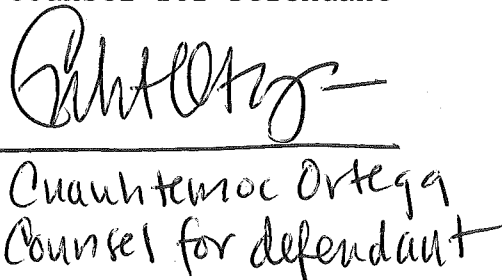 Cuauhtemoc Ortega
Counsel for defendant